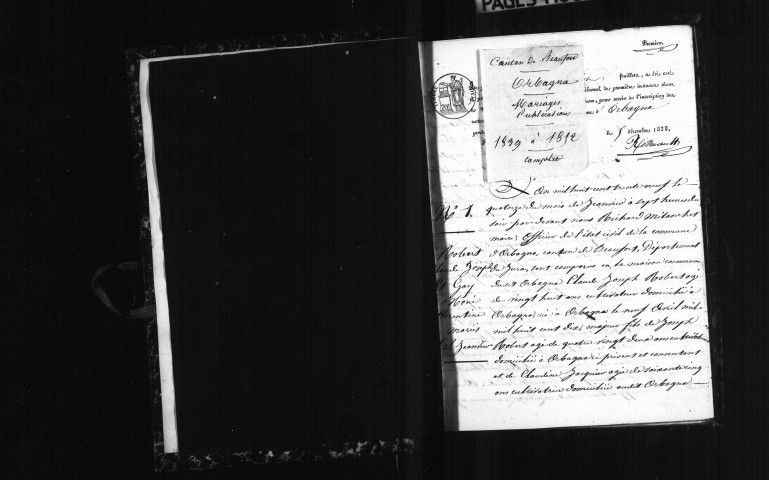 PAGES
Premier.
Canton de Beaufort
Orbagna
Mariages
Publications
1839 à 1842
complet
feuillets, a été coté
tribunal de première instance séant
pour servir à l'inscription des
à Orbagna
le 5 décembre 1838.
L'An mil huit cent trente neuf le
N° 1.
quatorze du mois de Janvier à sept heures du
soir par devant nous Richard Milanchet
maire, officier de l'état civil de la commune
Robert
d'Orbagna, canton de Beaufort, Département
Claude Joseph
du Jura, sont comparus en la maison commune
Gay
dudit Orbagna Claude Joseph Robert agé
de vingt huit ans cultivateur domicilié à
Orbagna, né à Orbagna le neuf Avril mil
mariés
mil huit cent dix, majeur fils de Joseph
Janvier
Robert agé de quatre vingt deux ans cultivateur
domicilié à Orbagna ci présent et consentant
et de Claudine Jacquier agée de soixante cinq
ans cultivatrice domiciliée audit Orbagna